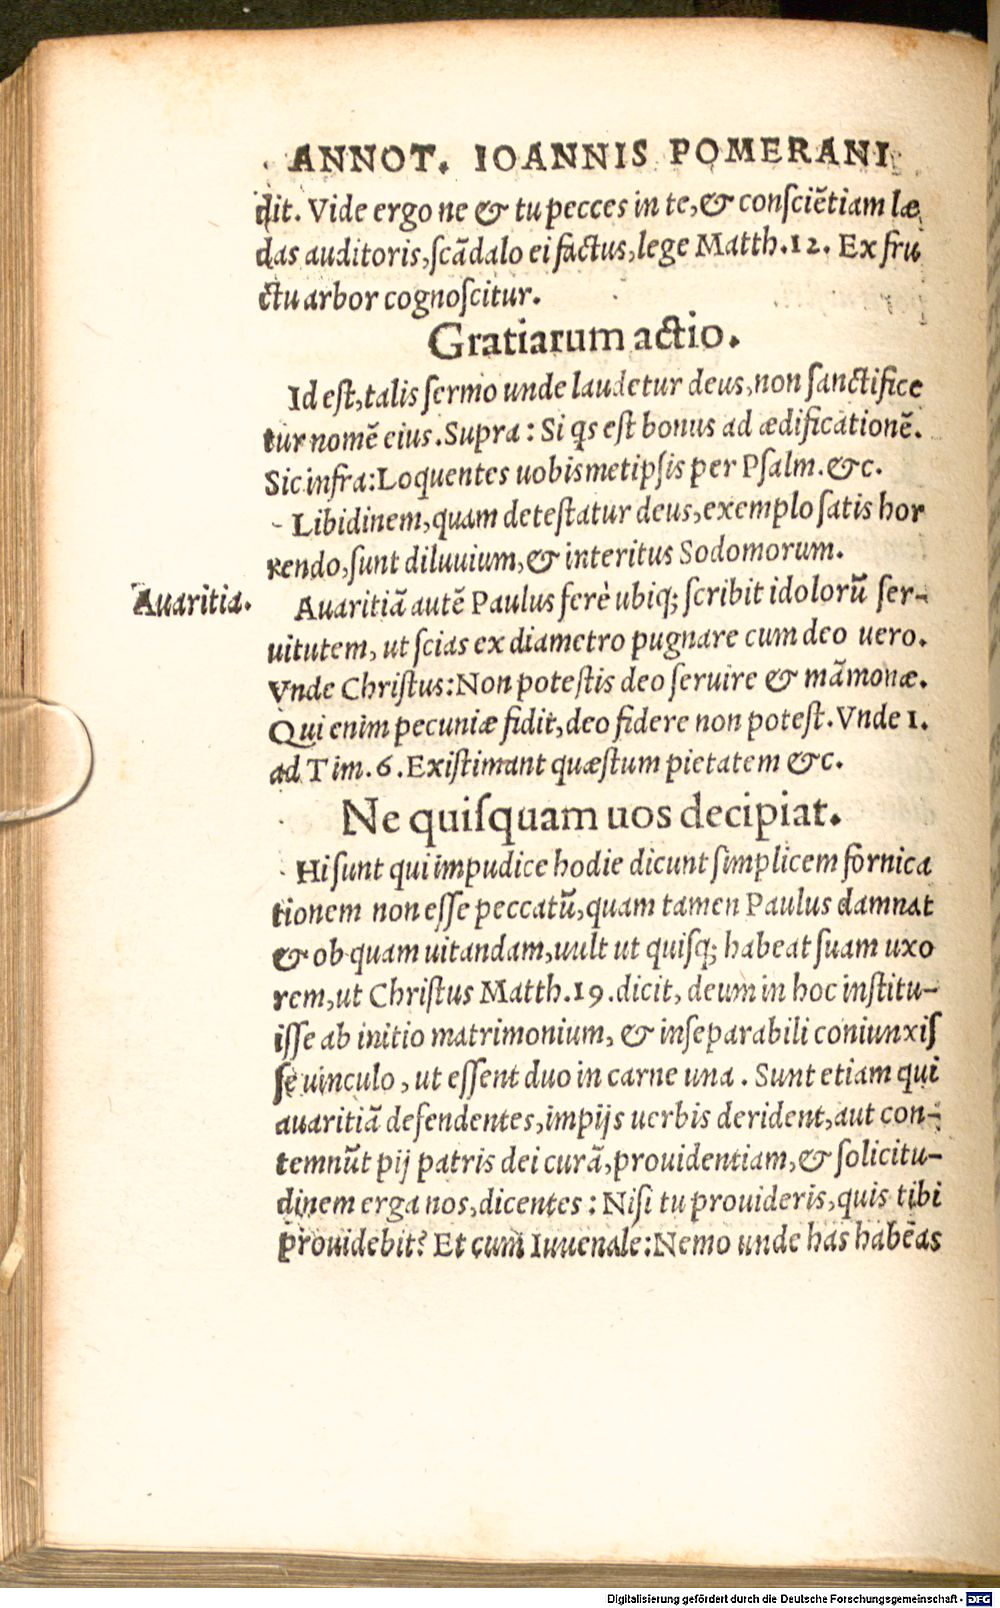 ANNOT. IOANNIS POMERANI
dit. Vide ergo ne & tu pecces in te, & consciẽtiam læ
das auditoris, scãdalo ei factus, lege Matth.12. Ex fru
ctu arbor cognoscitur.
Gratiarum actio.
Id est, talis sermo unde laudetur deus, non sanctifice
tur nomẽ eius. Supra: Si qs est bonus ad ædificationẽ.
Sic infra: Loquentes uobismetipsis per Psalm. &c.
Libidinem, quam detestatur deus, exemplo satis hor
rendo, sunt diluuium, & interitus Sodomorum.
Auaritia.
Auaritiã autẽ Paulus ferè ubiq; scribit idolorũ ser-
uitutem, ut scias ex diametro pugnare cum deo uero.
Vnde Christus: Non potestis deo seruire & mãmonæ.
Qui enim pecuniæ fidit, deo fidere non potest. Vnde 1.
ad Tim. 6. Existimant quæstum pietatem &c.
Ne quisquam uos decipiat.
Hi sunt qui impudice hodie dicunt simplicem fornica
tionem non esse peccatũ, quam tamen Paulus damnat
& ob quam uitandam, uult ut quisq; habeat suam uxo
rem, ut Christus Matth.19. dicit, deum in hoc institu-
isse ab initio matrimonium, & inseparabili coniunxis
se uinculo, ut essent duo in carne una. Sunt etiam qui
auaritiã defendentes, impijs uerbis derident, aut con-
temnũt pij patris dei curã, prouidentiam, & solicitu-
dinem erga nos, dicentes: Nisi tu prouideris, quis tibi
prouidebit? Et cum Iuuenale: Nemo unde has habẽas
Digitalisierung gefördert durch die Deutsche Forschungsgemeinschaft - DFG